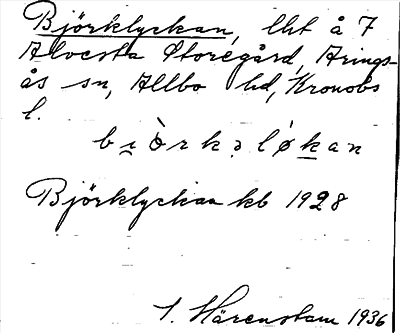 Björklyckan, lht å 7
Alvesta Storegård, Arings-
ås sn, Allbo hd, Kronobs
l.
bı̯òrkəløkan
Björklyckan kb 1928
S. Härenstam 1936